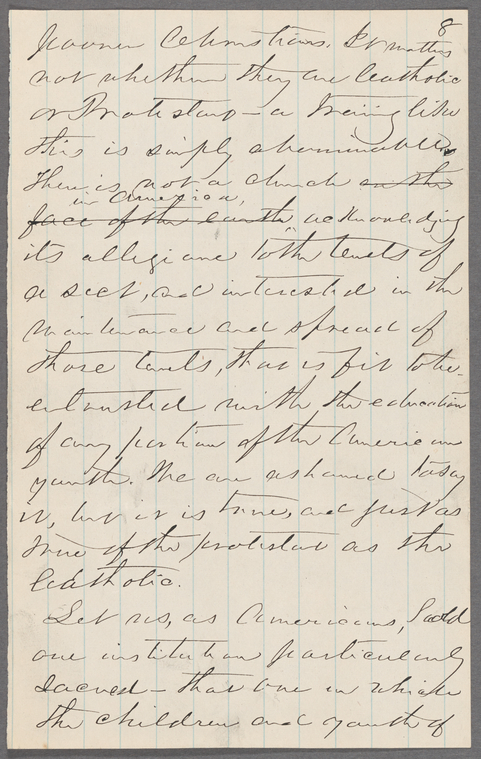 8
Christians. It matters
not whether they are Catholic
or Protestant — a training like
this is simply abominable.
There is not a church on the
in America,
face of the earth acknowledging
its allegiance to the tenets of
a sect, and interested in the
maintenance and spread of
those tenets, that is fit to be
entrusted with the education
of any portion of the American
youth. We are ashamed to say
it, but it is true, and just as
true of the protestant as the
Catholic.
Let us, as Americans, hold
one institution particularly
sacred — that one in which
the children and youth of